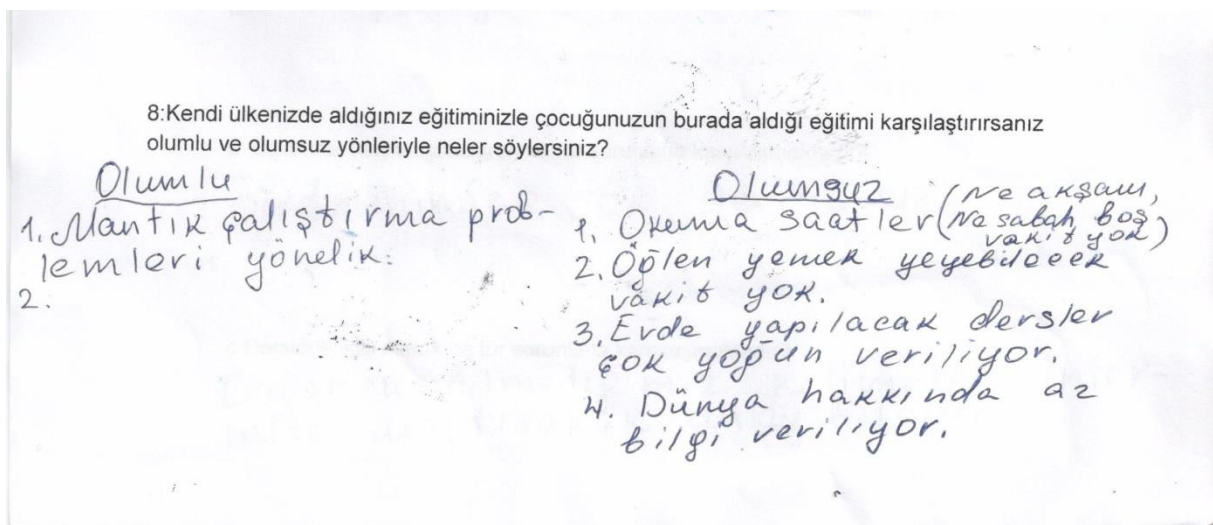 8:Kendi ülkenizde aldığınız eğitiminizle çocuğunuzun burada aldığı eğitimi karşılaştırırsanız
olumlu ve olumsuz yönleriyle neler söylersiniz?
Olumlu
1. Mantık çalıştırma prob-
lemleri yönelik.
2.
Olumsuz
1. Okuma saatler (Ne akşam,
Ne sabah boş
vakit yok)
2. Öğlen yemek yeyebilecek
vakit yok.
3. Evde yapılacak dersler
çok yoğun veriliyor.
4. Dünya hakkında az
bilgi veriliyor.